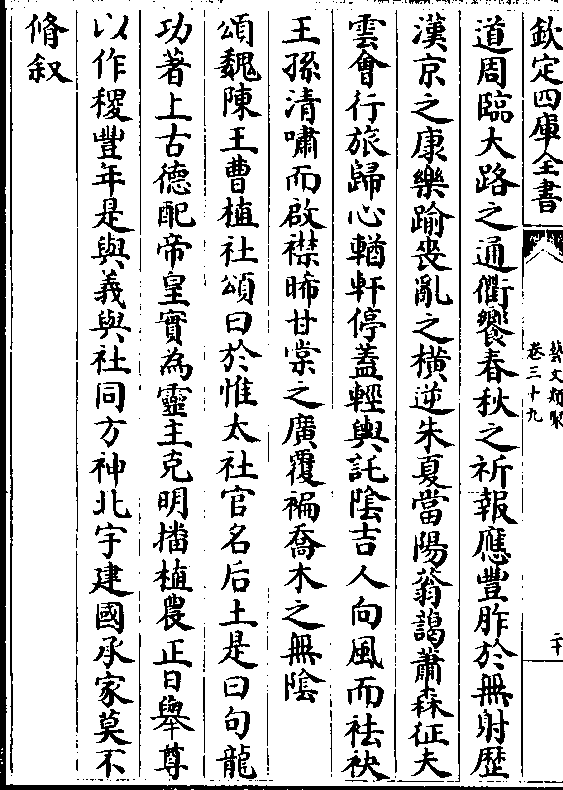 欽定四庫全書
藝文類聚
卷三十九
二十
道周臨大路之通衢饗春秋之祈報應豐胙於無射歴
漢京之康樂踰喪亂之橫逆朱夏當陽蓊藹蕭森征夫
雲會行旅歸心輶軒停蓋輕輿託陰吉人向風而祛袂
王孫清嘯而啟襟晞甘棠之廣覆褊喬木之無陰
頌魏陳王曹植社頌曰於惟太社官名后土是曰句龍
功著上古德配帝皇實為靈主克明播植農正曰舉尊
以作稷豐年是與義與社同方神北宇建國承家莫不
脩叙